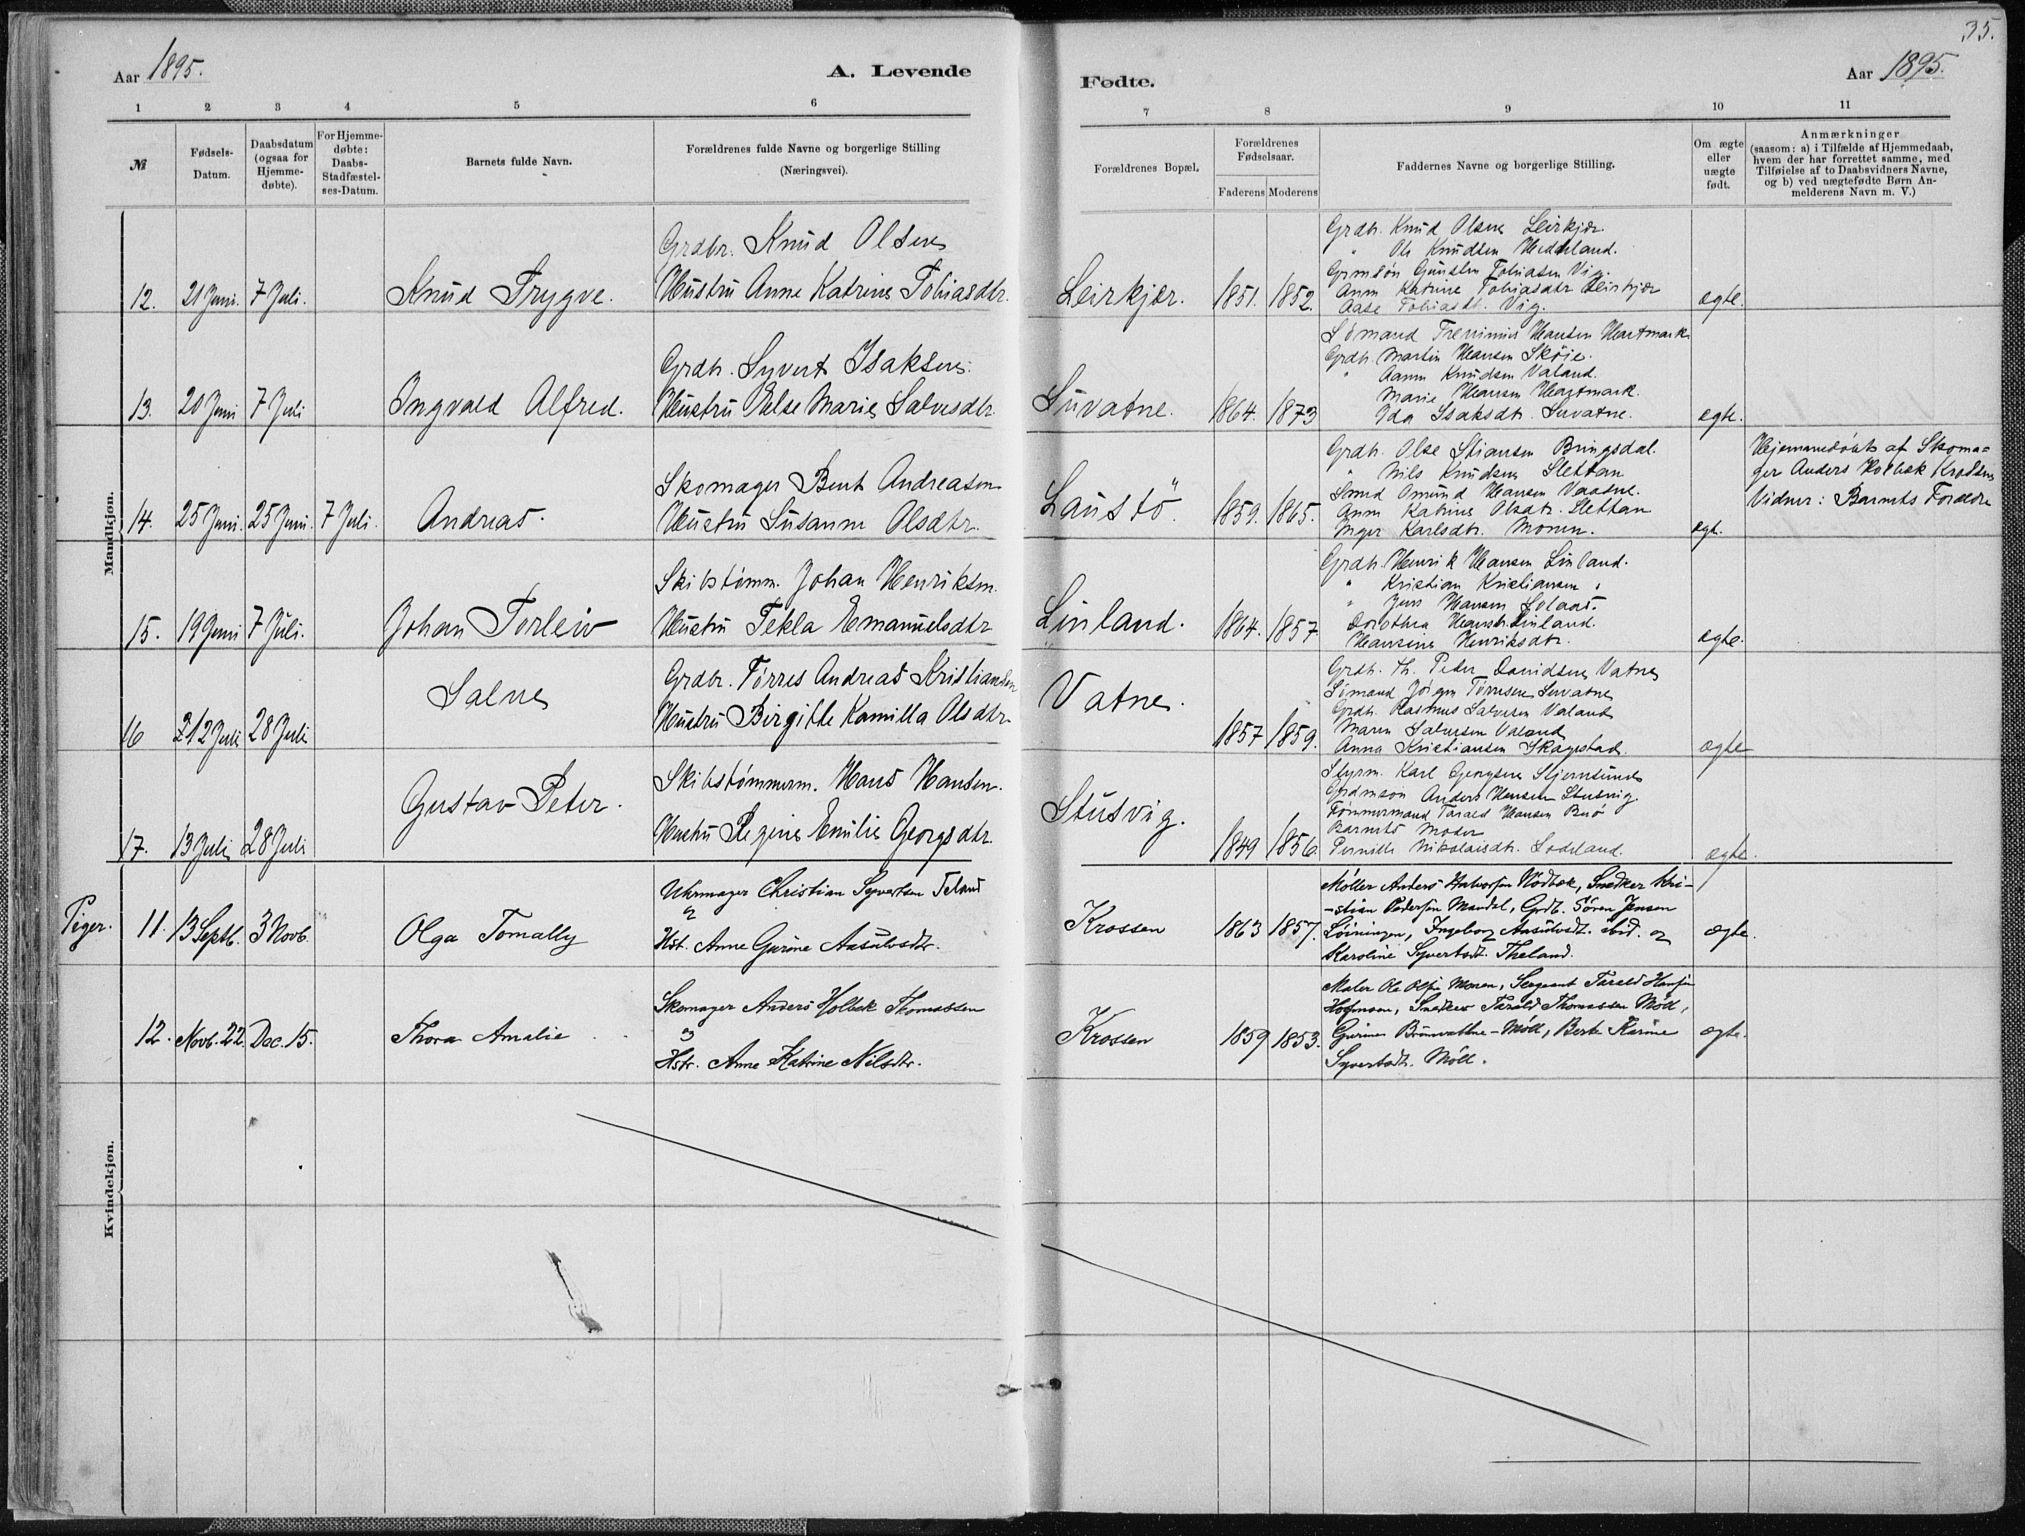 35.
Aar 1895.
A. Levende
Fødte.
Aar 1895.
1 2 3 4 5 6 7 8 9 10 11
№
Fødsels-
Datum.
Daabsdatum
(ogsaa for
Hjemme-
døbte).
For Hjemme-
døbte:
Daabs-
Stadfæstel-
ses-Datum.
Barnets fulde Navn.
Forældrenes fulde Navne og borgerlige Stilling
(Næringsvei).
Forældrenes Bopæl.
Forældrenes
Fødselsaar.
Faderens Moderens
Faddernes Navne og borgerlige Stilling.
Om ægte
eller
uægte
født.
Anmærkninger
(saasom: a) i Tilfælde af Hjemmedaab,
hvem der har forrettet samme, med
Tilføielse af to Daabsvidners Navne,
og b) ved uægtefødte Børn An-
melderens Navn m. V.)
Mandkjøn.
12. 21 Juni. 7 Juli. Knud Trygve.
Grdbr. Knud Olsen
Hustru Anne Katrine Tobiasdtr.
Leirkjær. 1851. 1852.
Grdb. Knud Olsen Leirkjær
" Ole Knudsen Heddeland.
Grmsøn Gunsten Tobiasen Vig.
Anne Katrine Tobiasdtr Leirkjær
Aase Tobiasdt. Vig.
ægte.
13. 20 Juni 7 Juli Ingvald Alfred.
Grdb. Syvert Isaksen.
Hustru Else Marie Salvesdtr.
Suvatne. 1864. 1873
Sømand Hansen Hartmark
Grdb. Martin Hansen Skøie.
" Aanen Knudsen Valand.
Marie Hansen Hartmark.
Ida Isaksdt. Suvatne.
ægte.
14. 25 Juni. 25 Juni. 7 Juli. Andreas.
Skomager Bent Andreasen
Hustru Susanne Olsdtr.
Laustø. 1859. 1865.
Grdb. Olse Stiansen Bringsdal.
" Nils Knudsen Slettan
Smed Omund Hansen Vaatne.
Anne Katrine Olsdtr. Slettan
Inger Karlsdtr. Monen.
ægt.
Hjemmedøbt af Skoma-
ger Anders Holbek Krossen
Vidner: Barnets Forældre
15. 19 Juni 7 Juli. Johan Torleiv
Skibstømm. Johan Henriksen.
Hustru Tekla Emanuelsdtr
Linland. 1864. 1857
Grdb. Henrik Hansen Linland.
" Kristian Kristiansen "
" Jens Hansen Solaas.
Dorothea Hansdt. Linland.
Hansine Henriksdtr.
ægte.
16 12 Juli 28 Juli Salve
Grdbr. Tørres Andreas Kristiansen
Hustru Birgitte Kamilla Olsdtr
Vatne. 1857 1859.
Grdb. Th. Peder Davidsen Vatne
Sømand Jørgen Tørresen Suvatne
Grdb. Rasmus Salvesen Valand
Maren Salvesen Valand
Anna Kristiansen Skagestad.
ægte
17. 13 Juli 28 Juli Gustav Peter.
Skibstømmerm. Hans Hansen.
Hustru Regine Emilie Georgsdtr.
Stusvig. 1849 1856.
Styrm. Karl Georgsen Stjernsund
Grdmson Anders Hansen Stusvig.
Tømmermand Tarald Hansen Buø
Barnets Moder
Pernille Nikolaisdtr. Sodeland.
ægte.
Piger.
Kvindekjøn.
11. 13 Septb. 3 Novb. Olga Tomally
Uhrmager Christian Syvertsen Teland
Hst. Anne Gurine Aasulvsdtr.
Krossen 1863 1857.
Møller Anders Halvorsen Nødbek, Snedker Kri-
-stian Pedersen Mandal, Grdb. Søren Jensen
Løiningen, Ingeborg Aasulvsdt. ibid. og
Karoline Syvertsdt. Theland.
ægte.
12. Novb. 22. Dec. 15. Thora Amalie
Skomager Anders Holbek Thomassen
Hstr. Anne Katrine Nilsdtr.
Krossen 1859 1853.
Maler Ole Olsen Monen, Sergeant Tarald Hansen
Hogganvik, Snedker Tarald Thomassen Møll,
Gurine Brunvatne-Møll, Berte Karine
Syvertsdt. Møll.
ægte.